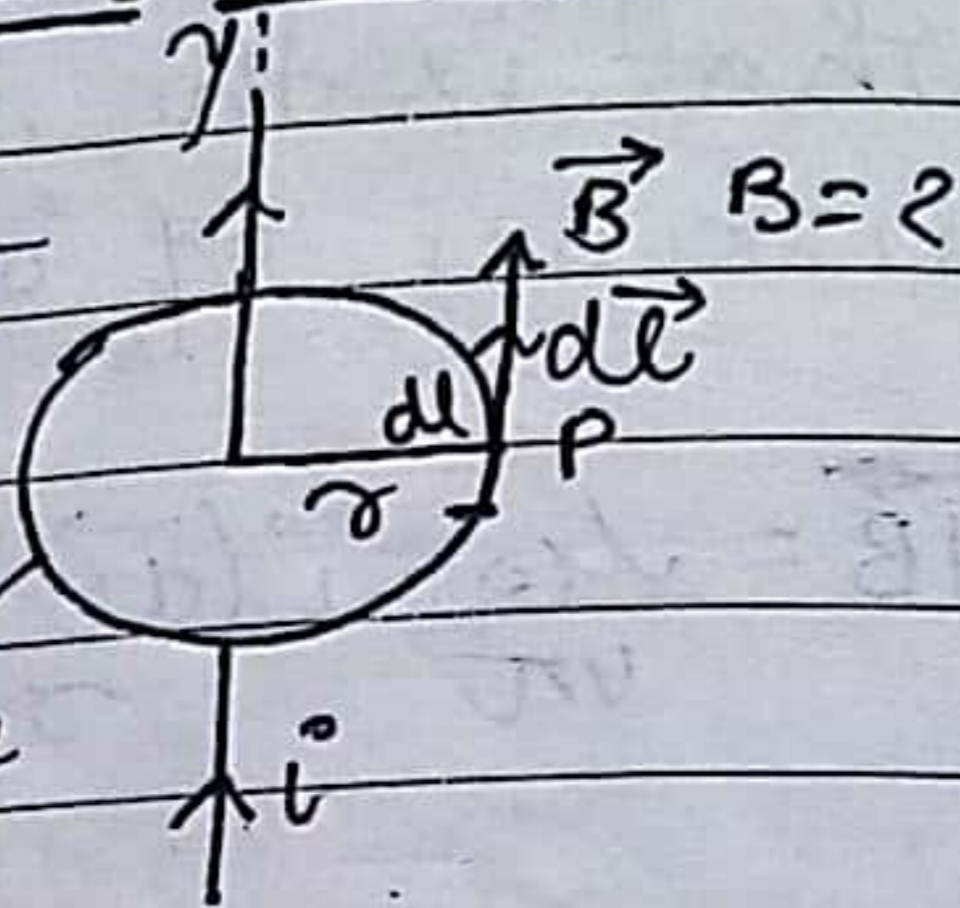 y
B⃗ B = ?
dl⃗
dl
P
r
i